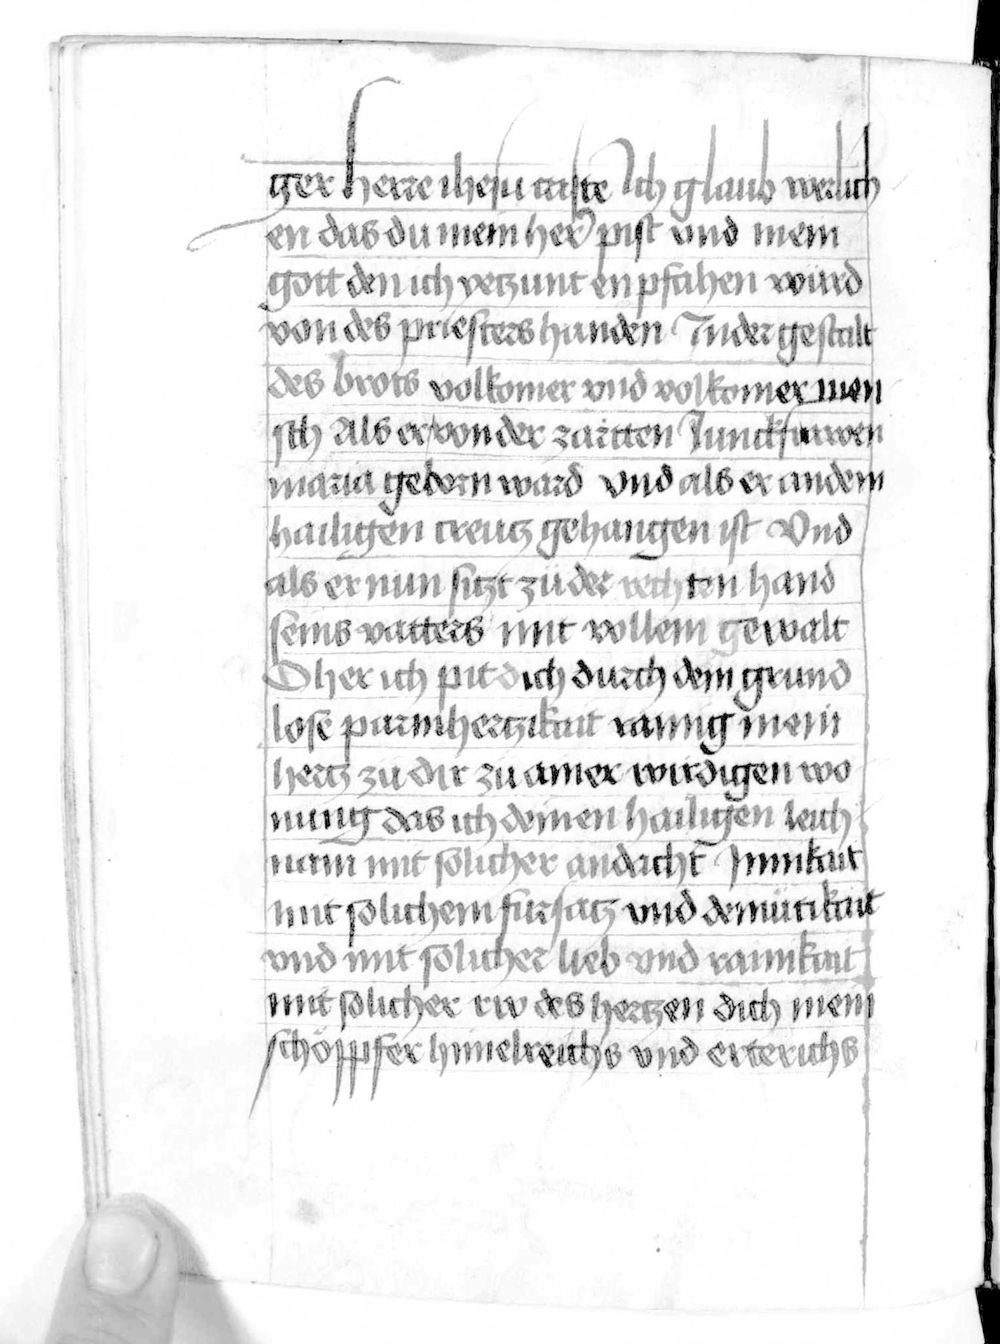 ger herre ihesu criste Ich glaub werlich
en das du mein her pist vnd mein
gott den ich yetzunt enpfahen würd
von des priesters handen In der gestalt
des brots volkomer vnd volkomer men
sch Als er von der zartten Junckfrawen
maria geborn ward vnd als er an dem
hailigen creutz gehangen ist Vnd
als er nun sitzt zü der rechten hand
seins vatters mit vollem gewalt
O her ich pit dich durch dein grund
lose parmhertzikait rainig mein
hertz zü dir zü ainer wirdigen wo
nung das ich deinen hailigen leich
nam mit solicher andacht Jnnikait
mit solichem fürsatz vnd demütikait
vnd mit solicher lieb vnd rainikait
mit solicher rw des hertzen dich mein
schöppfer himelreichs vnd erterichs